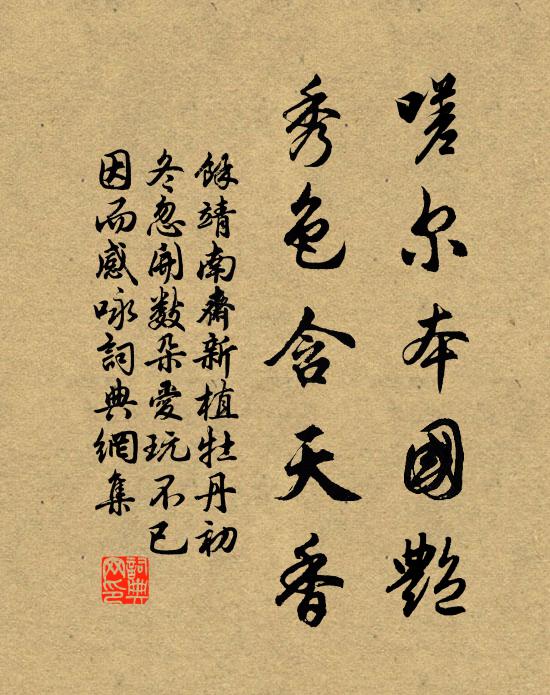 嗟尔本國艷
秀色含天香
餘靖南齋新植牡丹初
冬忽開數朵愛玩不已
因而感咏詞典網集
詞典
网印